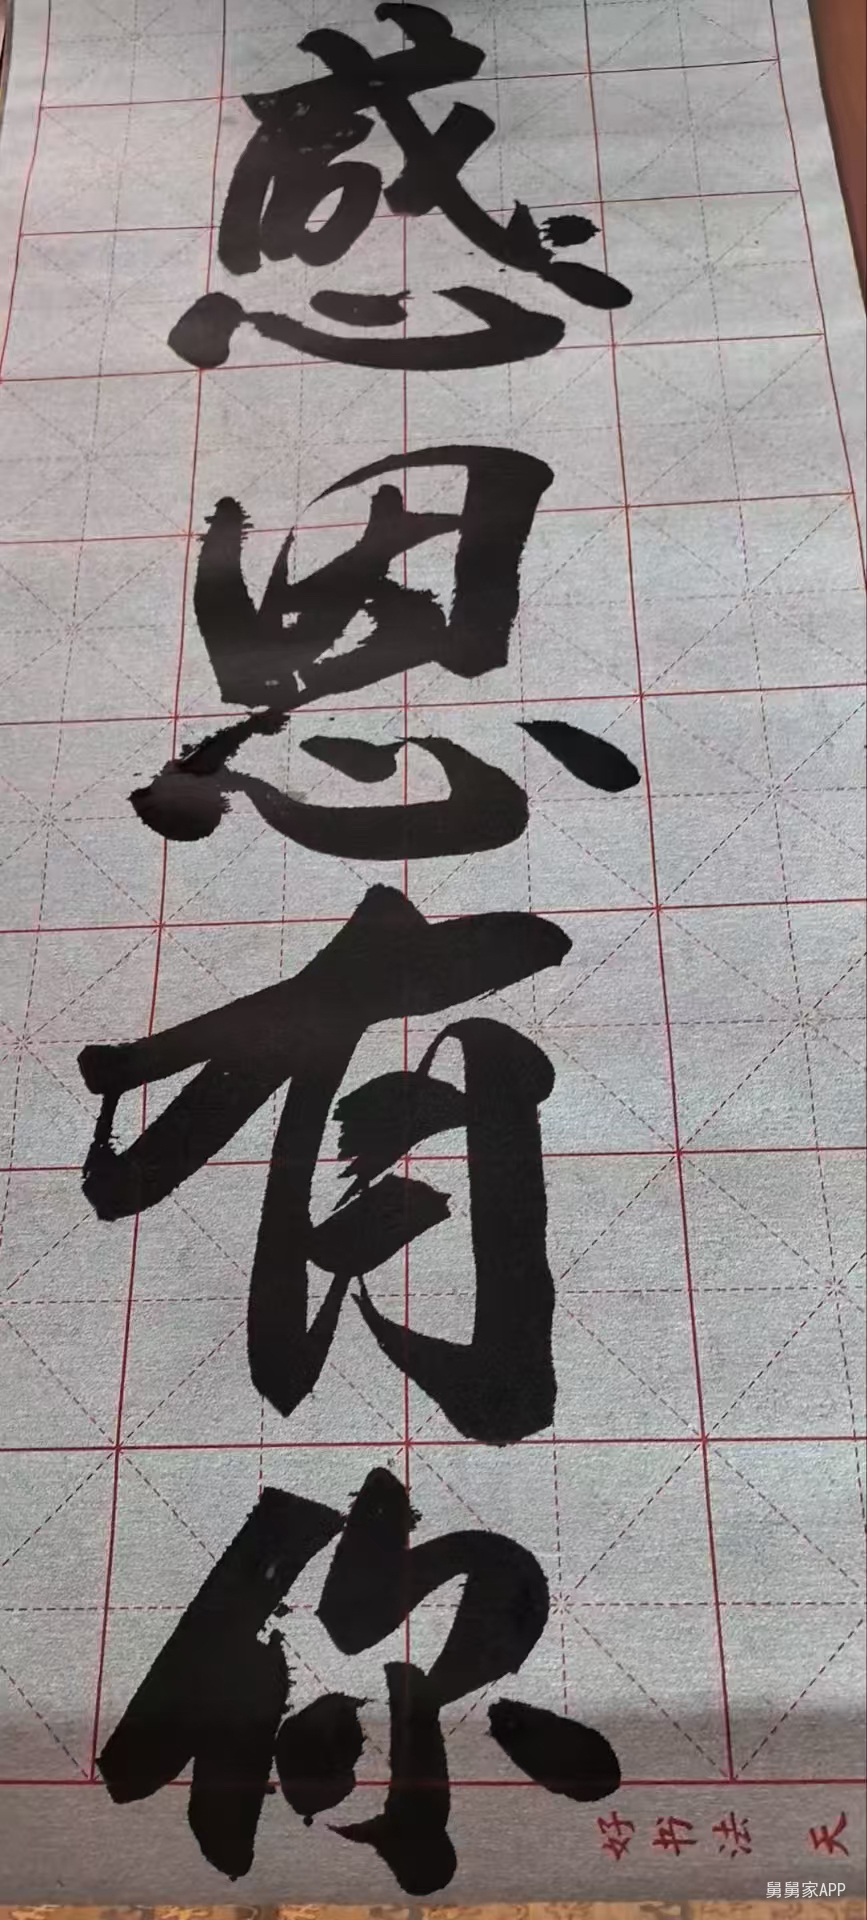 感恩有你
好书法 天
舅舅家APP